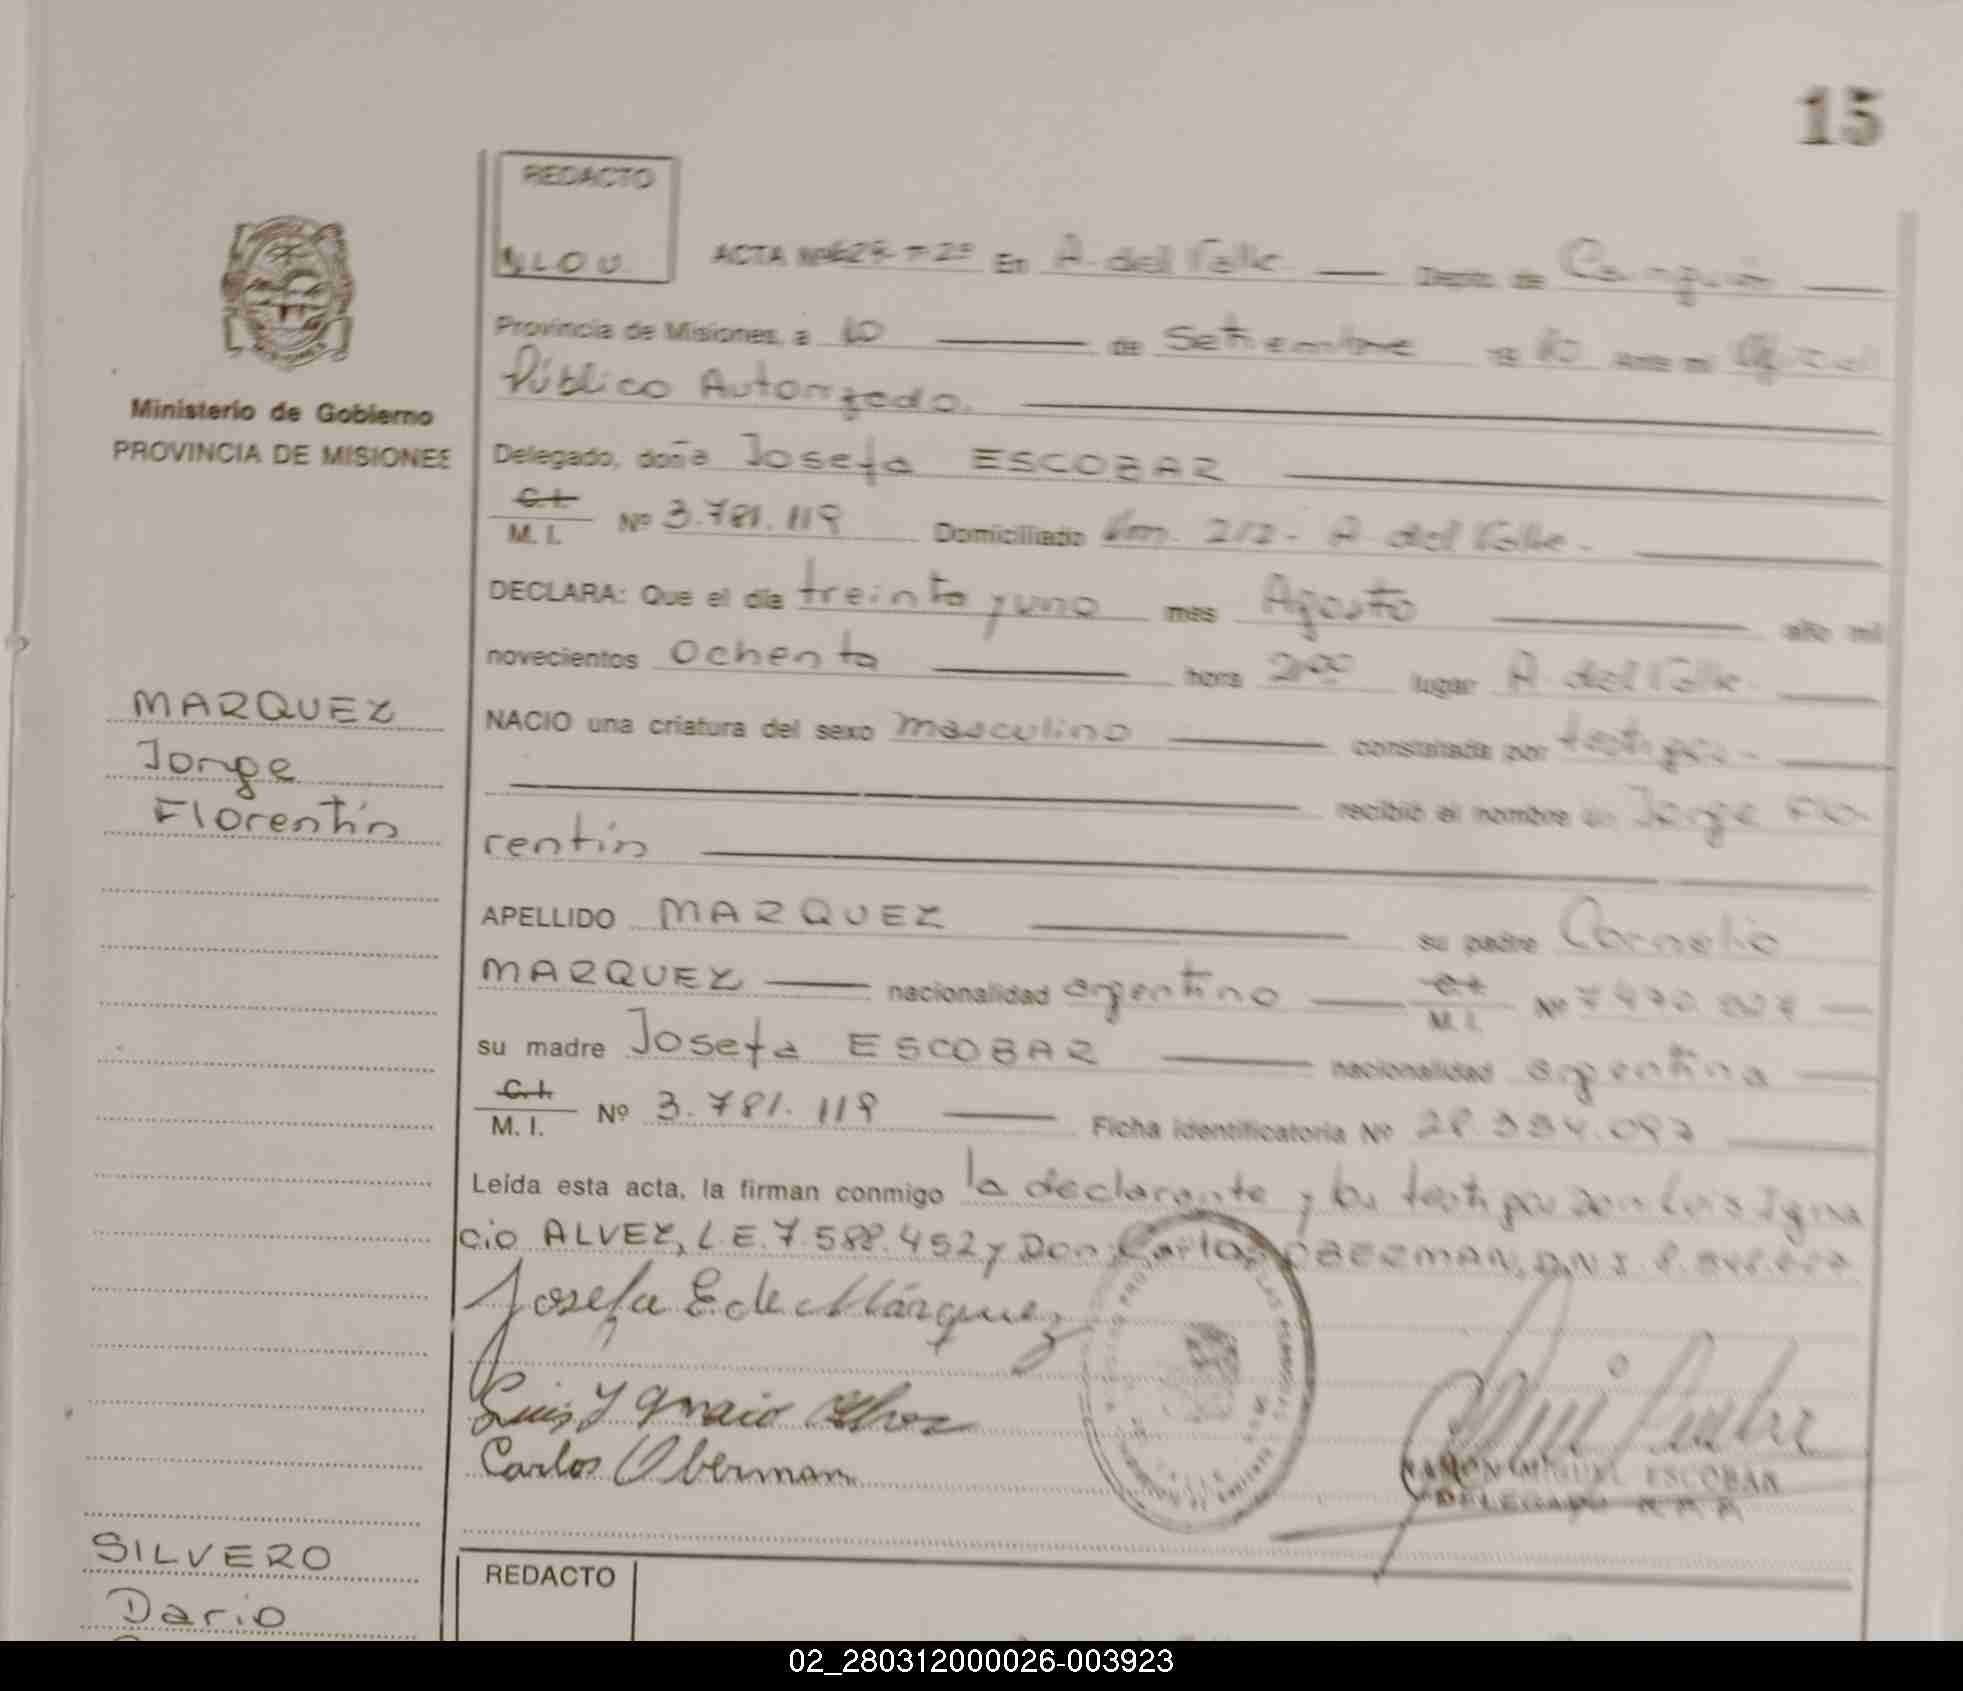 15
REDACTO
ACTA Nº En A. del Valle Depto. de
Provincia de Misiones, a 10 de Setiembre 19 80 Ante mi Oficial
Público Autorizado.
Ministerio de Gobierno
PROVINCIA DE MISIONES
Delegado, doña Josefa ESCOBAR
C.I.
M. I. Nº 3.781.119 Domiciliado Km. 212 - A del Valle -
DECLARA: Que el día treinta y uno mes Agosto año mil
novecientos Ochenta hora 21,00 lugar A del Valle.
MARQUEZ
Jorge
Florentín
NACIO una criatura del sexo masculino constatada por testigos -
recibió el nombre de Jorge Flo-
rentín
APELLIDO MARQUEZ su padre Cornelio
MARQUEZ nacionalidad argentino C.I. M. I. Nº
su madre Josefa ESCOBAR nacionalidad argentina
C.I.
M. I. Nº 3.781.119 Ficha identificatoria Nº
Leída esta acta, la firman conmigo la declarante y los testigos don Luis Igna
cio ALVEZ, L.E. 7.588.452 y Don Carlos OBERMAN, D.N.I.
Josefa E de Márquez
Luis Ygnacio Alvez
Carlos Oberman
RAMON MIGUEL ESCOBAR
DELEGADO
SILVERO
Dario
REDACTO
02_280312000026-003923